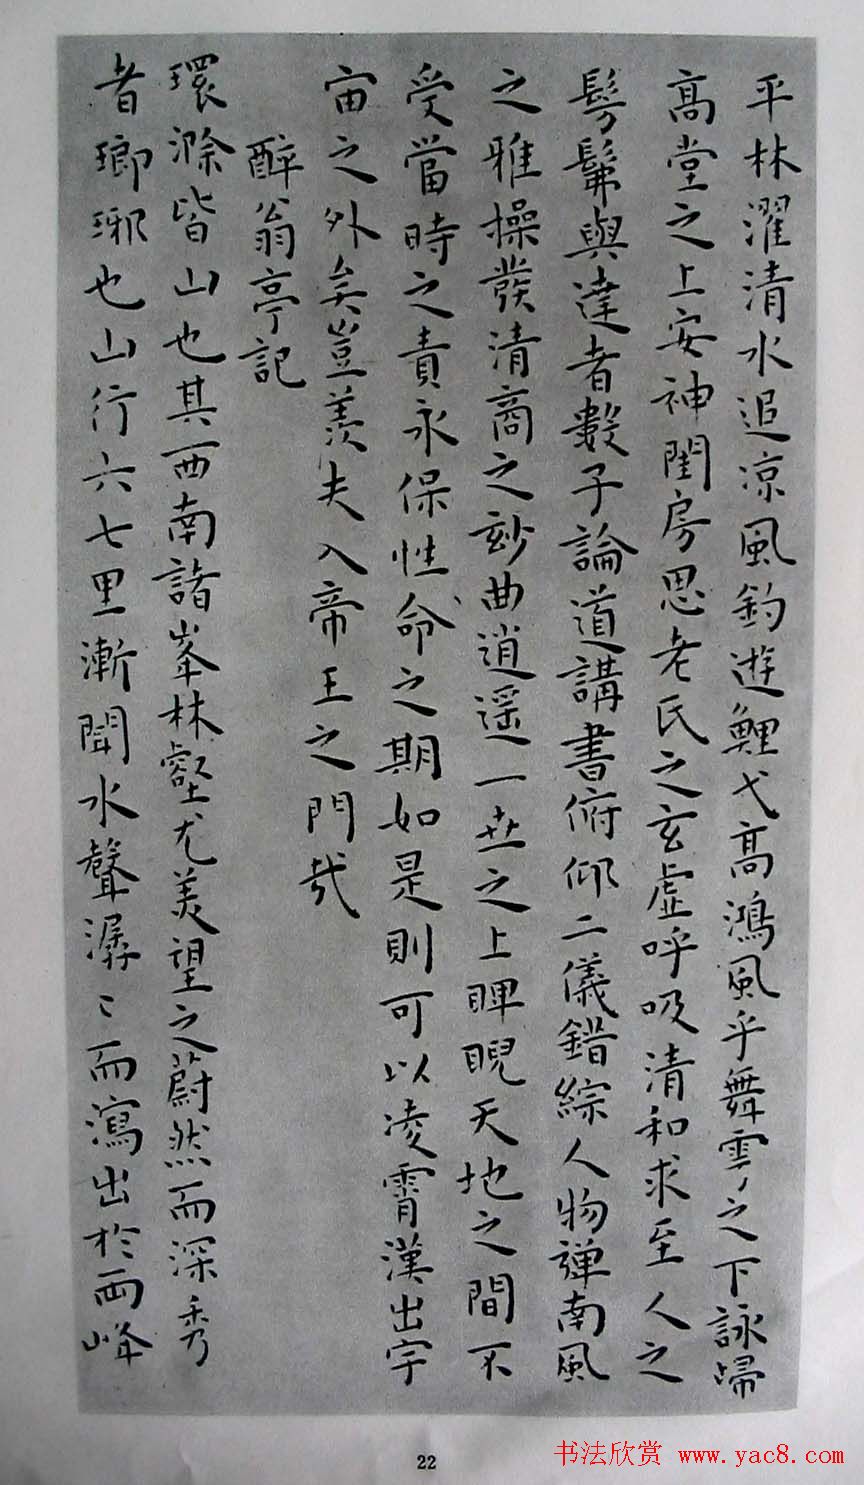 平林濯清水追涼風釣遊鯉弋高鴻風乎舞雩之下詠歸
高堂之上安神閨房思老氏之玄虛呼吸清和求至人之
髣髴與達者數子論道講書俯仰二儀錯綜人物彈南風
之雅操發清商之妙曲逍遥一世之上睥睨天地之間不
受當時之責永保性命之期如是則可以凌霄漢出宇
宙之外矣豈羨夫入帝王之門哉
醉翁亭記
環滁皆山也其西南諸峯林壑尤美望之蔚然而深秀
者瑯琊也山行六七里漸聞水聲潺〻而瀉出於兩峰
22
书法欣赏 www.yac8.com